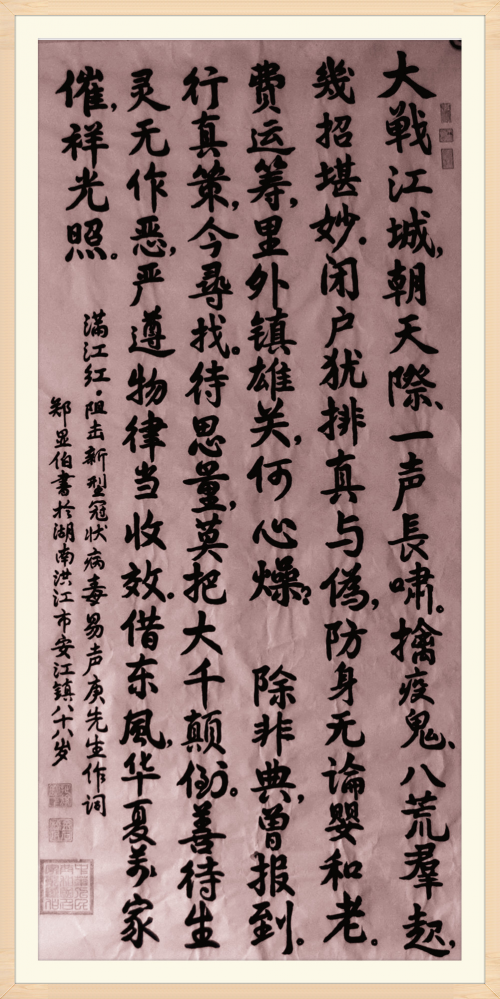 大戦江城，朝天際、一声長啸。擒疫鬼、八荒羣起，
幾招堪妙。闭户犹排真与偽，防身无論婴和老。
费运筹，里外镇雄关，何心燥？ 除非典，曽报到。
行真策，今尋找。待思量，莫把大千颠倒。善待生
灵无作恶，严遵物律当收效。借东風，华夏万家
催，祥光照。
满江红·阻击新型冠状病毒易声庚先生作词
郑显伯書於湖南洪江市安江镇八十八岁